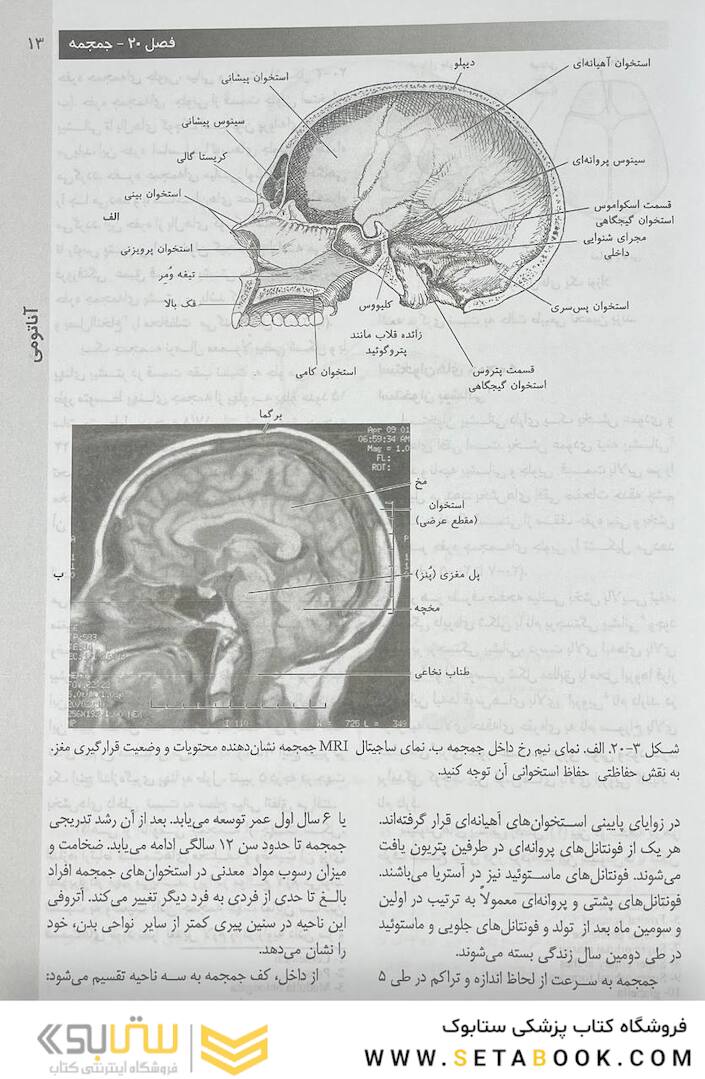 فصل ۲۰ - جمجمه
۱۳
استخوان آهیانه‌ای
دیپلو
استخوان پیشانی
سینوس پیشانی
کریستا گالی
استخوان بینی
الف
استخوان پرویزنی
تیغه وُمِر
فک بالا
سینوس پروانه‌ای
قسمت اسکواموس
استخوان گیجگاهی
مجرای شنوایی
داخلی
استخوان پس‌سری
کلیووس
زائده قلاب مانند
پتروگوئید
استخوان کامی
قسمت پتروس
استخوان گیجگاهی
آناتومی
برگما
Apr 09 01
06:59:34 AM
Mag = 1.0
FL:
ROT:
مخ
استخوان
(مقطع عرضی)
ب
پل مغزی (پُنز)
مخچه
طناب نخاعی
I 110
W = 725 L = 349
شـکل ۳-۲۰. الف. نمای نیم رخ داخل جمجمه ب. نمای ساجیتال MRI جمجمه نشان‌دهنده محتویات و وضعیت قرارگیری مغز.
به نقش حفاظتی حفاظ استخوانی آن توجه کنید.
در زوایای پایینی استـخوان‌های آهیانه‌ای قرار گرفته‌اند.
هر یک از فونتانل‌های پروانه‌ای در طرفین پتریون یافت
می‌شوند. فونتانل‌های ماسـتوئید نیز در آستریا می‌باشند.
فونتانل‌های پشتی و پروانه‌ای معمولاً به ترتیب در اولین
و سومین ماه بعد از تولد و فونتانل‌های جلویی و ماستوئید
در طی دومین سال زندگی بسته می‌شوند.
جمجمه به سـرعت از لحاظ اندازه و تراکم در طی ۵
یا ۶ سال اول عمر توسعه می‌یابد. بعد از آن رشد تدریجی
جمجمه تا حدود سن ۱۲ سالگی ادامه می‌یابد. ضخامت و
میزان رسوب مواد معدنی در استخوان‌های جمجمه افراد
بالـغ تا حدی از فردی به فرد دیگر تغییر می‌کند. آتروفی
این ناحیه در سنین پیری کمتر از سایر نواحی بدن، خود
را نشان می‌دهد.
از داخل، کف جمجمه به سـه ناحیه تقسیم می‌شود:
فروشگاه کتاب پزشکی ستابوک
WWW.SETABOOK.COM
ستابوک
فروشگاه اینترنتی کتاب